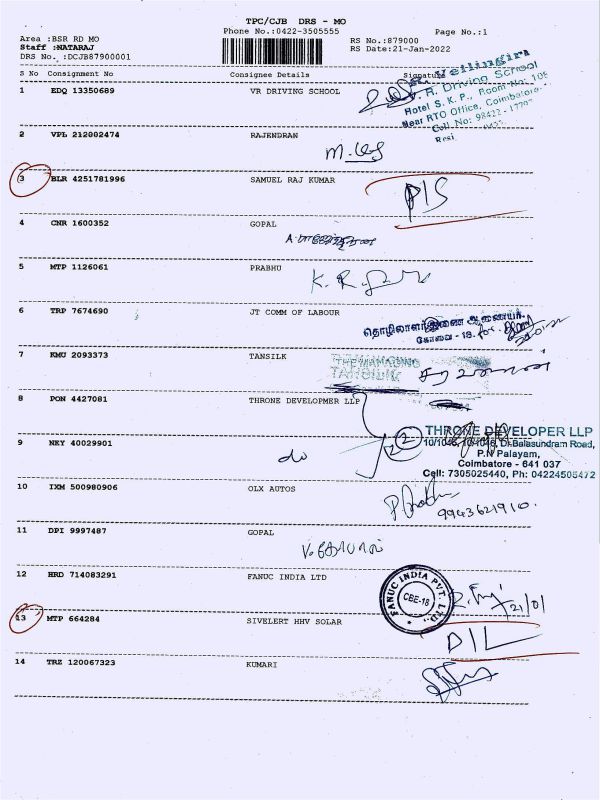 TPC/CJB DRS - MO
Phone No.:0422-3505555 Page No.:1
Area :BSR RD MO RS No.:879000
Staff :NATARAJ RS Date:21-Jan-2022
DRS No. :DCJB87900001
S No Consignment No Consignee Details Signature
1 EDQ 13350689 VR DRIVING SCHOOL
R. Driving School
Hotel S. K. P., Room No: 105
Near RTO Office, Coimbatore-
Cell No: 98422
2 VPL 212002474 RAJENDRAN
3 BLR 4251781996 SAMUEL RAJ KUMAR
P/S
4 CNR 1600352 GOPAL
5 MTP 1126061 PRABHU
K. R.
6 TRP 7674690 JT COMM OF LABOUR
தொழிலாளர் இணை ஆணையர்
கோவை - 18.
7 KMU 2093373 TANSILK
TANSILK
சரவணன்
8 PON 4427081 THRONE DEVELOPMER LLP
THRONE DEVELOPER LLP
9 NEY 40029901 do
Dr.Balasundram Road,
P.N Palayam,
Coimbatore - 641 037
Cell: 7305025440, Ph: 04224505472
10 IXM 500980906 OLX AUTOS
9943621910.
11 DPI 9997487 GOPAL
V.கோபால்
12 HRD 714083291 FANUC INDIA LTD
FANUC INDIA PVT. LTD.,
CBE-18
21/01
13 MTP 664284 SIVELERT HHV SOLAR
D/L
14 TRZ 120067323 KUMARI